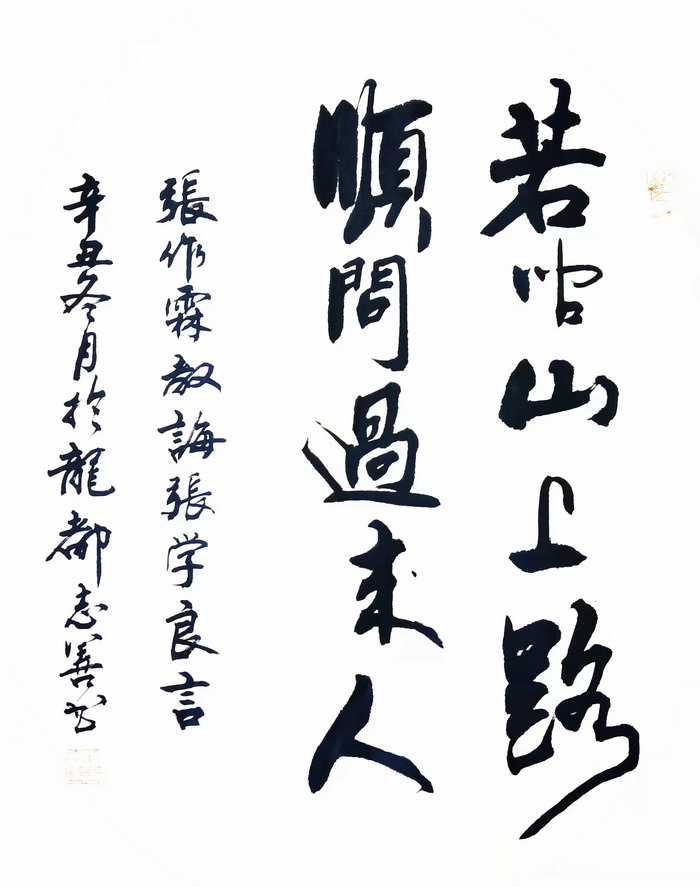 若山上路
順問過来人
張作霖教誨張学良言
辛丑冬月於龍都志善书